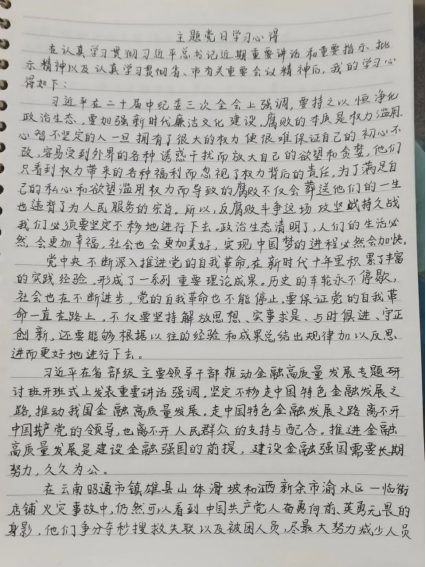 主题党日学习心得
在认真学习贯彻习近平总书记近期重要讲话和重要指示、批
示精神以及认真学习贯彻省、市有关重要会议精神后，我的学习心
得如下：
习近平在二十届中纪委三次全会上强调，要持之以恒净化
政治生态，要加强新时代廉洁文化建设。腐败的本质是权力滥用
心智不坚定的人一旦拥有了很大的权力便很难保证自己的初心不
改，容易受到外界的各种诱惑干扰而放大自己的欲望和贪婪，他们
只看到权力带来的各种福利而忽视了权力背后的责任，为了满足自
己的私心和欲望滥用权力而导致的腐败不仅会葬送他们的一生
也违背了为人民服务的宗旨。所以，反腐败斗争这场攻坚战持久战
我们必须要坚定不移地进行下去。政治生态清明了，人们的生活必
然会更加幸福，社会也会更加美好，实现中国梦的进程必然会加快。
党中央不断深入推进党的自我革命，在新时代十年里积累了丰富
的实践经验，形成了一系列重要理论成果。历史的车轮永不停歇，
社会也在不断进步，党的自我革命也不能停止，要保证党的自我革
命一直在路上，不仅要坚持解放思想、实事求是、与时俱进、守正
创新，还要能够根据以往的经验和成果总结出规律加以反思，
进而更好地进行下去。
习近平在省部级主要领导干部推动金融高质量发展专题研
讨班开班式上发表重要讲话强调，坚定不移走中国特色金融发展之
路，推动我国金融高质量发展。走中国特色金融发展之路离不开
中国共产党的领导，也离不开人民群众的支持与配合。推进金融
高质量发展是建设金融强国的前提，建设金融强国需要长期
努力，久久为功。
在云南昭通市镇雄县山体滑坡和江西新余市渝水区一临街
店铺火灾事故中，仍然可以看到中国共产党人奋勇向前、英勇无畏的
身影，他们争分夺秒搜救失联以及被困人员，尽最大努力减少人员